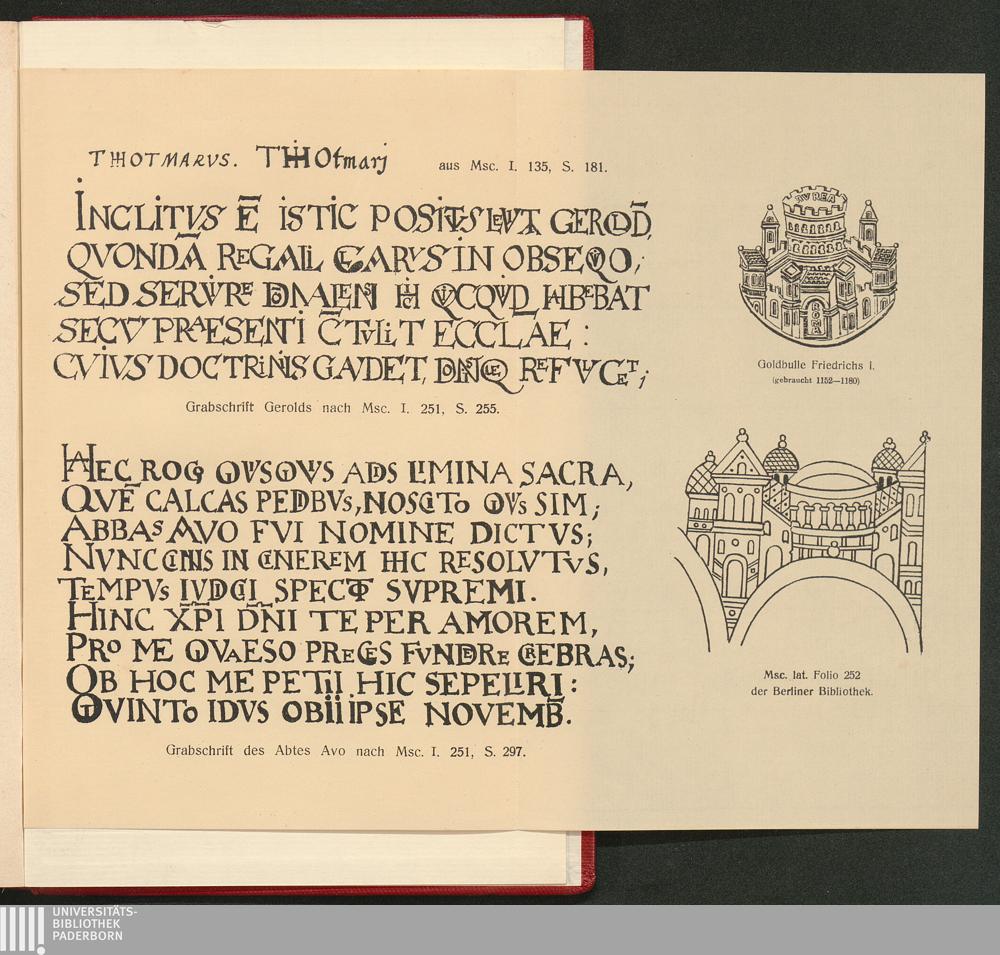 THIOTMARVS. THIOtmarj aus Msc. I. 135, S. 181.
INCLITVS Ē ISTIC POSITVS LEVITA GEROLD,
QVONDĀ REGALI CARVS IN OBSEQVIO;
SED SERVIRE HIC QVICQVID HABEBAT
SECV PRAESENTI CTVLIT ECCLAE :
CVIVS DOCTRINIS GAVDET, REFVLGET;
Grabschrift Gerolds nach Msc. I. 251, S. 255.
HAEC ROGO QVISQVIS ADIS LIMINA SACRA,
QVĒ CALCAS PEDIBVS, NOSCITO QVIS SIM;
ABBAS AVO FVI NOMINE DICTVS;
NVNC CINIS IN CINEREM HIC RESOLVTVS,
TEMPVS IVDICII SPECTO SVPREMI.
HINC XP̄I DN̄I TE PER AMOREM,
PRO ME QVAESO PRECES FVNDERE CREBRAS;
OB HOC ME PETII HIC SEPELIRI :
QVINTO IDVS OBII IPSE NOVEMB̄.
Grabschrift des Abtes Avo nach Msc. I. 251, S. 297.
AVREA
ROMA
Goldbulle Friedrichs I.
(gebraucht 1152—1180)
Msc. lat. Folio 252
der Berliner Bibliothek.
UNIVERSITÄTS-
BIBLIOTHEK
PADERBORN